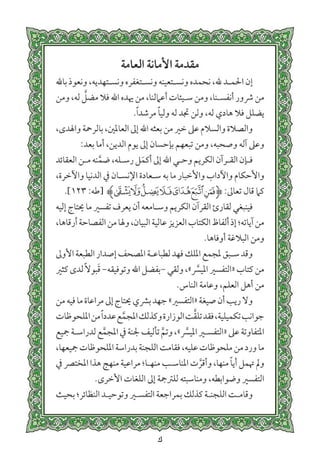 مقدمة الأمانة العامة
إن الحمد لله، نحمده ونستعينه ونستغفره ونستهديه، ونعوذ بالله
من شرور أنفسنا، ومن سيئات أعمالنا، من يهده الله فلا مضلّ له، ومن
يضلل فلا هادي له، ولن تجد له ولياً مرشداً.
والصلاة والسلام على خير من بعثه الله إلى العالمين، بالرحمة والهدى،
وعلى آله وصحبه، ومن تبعهم بإحسان إلى يوم الدين، أما بعد:
فإن القرآن الكريم وحي الله إلى أكمل رسله، ضمّنه من العقائد
والأحكام والآداب والأخبار ما به سعادة الإنسان في الدنيا والآخرة،
كما قال تعالى: ﴿فَمَنِ ٱتَّبَعَ هُدَايَ فَلَا يَضِلُّ وَلَا يَشْقَىٰ﴾ [طه: ١٢٣].
فينبغي لقارئ القرآن الكريم وسامعه أن يعرف تفسير ما يحتاج إليه
من آياته؛ إذ ألفاظ الكتاب العزيز عالية البيان، ولها من الفصاحة أرقاها،
ومن البلاغة أوفاها.
وقد سبق لمجمع الملك فهد لطباعة المصحف إصدار الطبعة الأولى
من كتاب «التفسير الميسَّر»، ولقي -بفضل الله وتوفيقه- قَبولاً لدى كثير
من أهل العلم، وعامة الناس.
ولا ريب أن صيغة «التفسير» جهد بشري يحتاج إلى مراعاة ما فيه من
جوانب تكميلية، فقد تلقَّت الوزارة وكذلك المجمَّع عدداً من الملحوظات
المتفاوتة على «التفسير الميسَّر»، وتمَّ تأليف لجنة في المجمَّع لدراسة جميع
ما ورد من ملحوظات عليه، فقامت اللجنة بدراسة الملحوظات جميعها،
ولم تهمل أياً منها، وأقرَّت المناسب منها؛ مراعاة منهج هذا المختصر في
التفسير وضوابطه، ومناسبته للترجمة إلى اللغات الأخرى.
وقامت اللجنة كذلك بمراجعة التفسير وتوحيد النظائر؛ بحيث